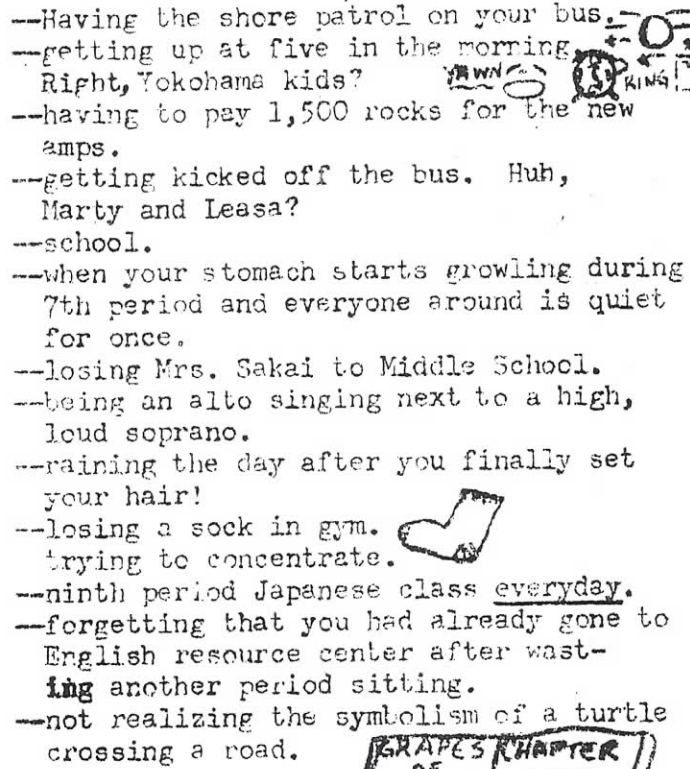 --Having the shore patrol on your bus.
--getting up at five in the morning.
Right, Yokohama kids?
YAWN
RING
--having to pay 1,500 rocks for the new
amps.
--getting kicked off the bus. Huh,
Marty and Leasa?
--school.
--when your stomach starts growling during
7th period and everyone around is quiet
for once.
--losing Mrs. Sakai to Middle School.
--being an alto singing next to a high,
loud soprano.
--raining the day after you finally set
your hair!
--losing a sock in gym.
trying to concentrate.
--ninth period Japanese class everyday.
--forgetting that you had already gone to
English resource center after wast-
ing another period sitting.
--not realizing the symbolism of a turtle
crossing a road.
GRAPES CHAPTER
OF